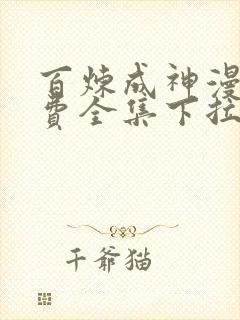 百炼成神漫
费全集下拉
千爷猫